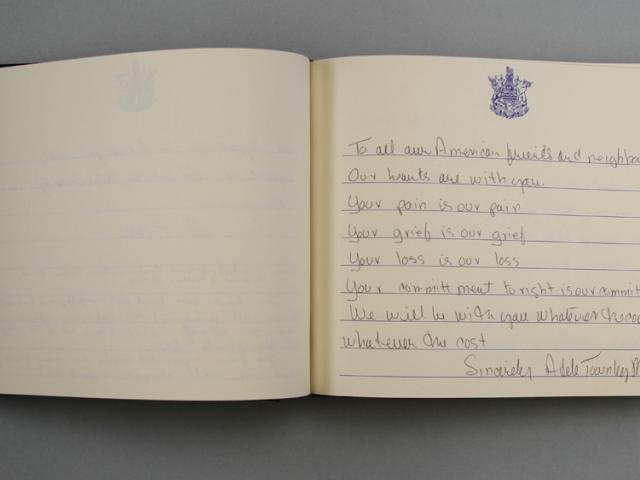 To all our American friends and neighbo
Our hearts are with you.
Your pain is our pain
Your grief is our grief
Your loss is our loss
Your committment to right is our committ
We will be with you whatever the co
whatever the cost
Sincerely Adele Townley